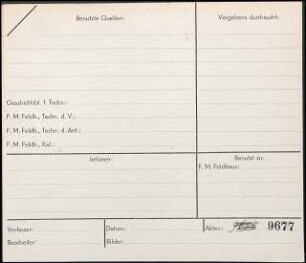 Benutzte Quellen:
Vergebens durchsucht:
Geschichtsbl. f. Techn.:
F. M. Feldh., Techn. d. V.:
F. M. Feldh., Techn. d. Ant.:
F. M. Feldh., Kal.:
Irrtümer:
Benutzt zu:
F. M. Feldhaus:
Verfasser:
Datum:
Akten:
9677
Bearbeiter:
Bilder: